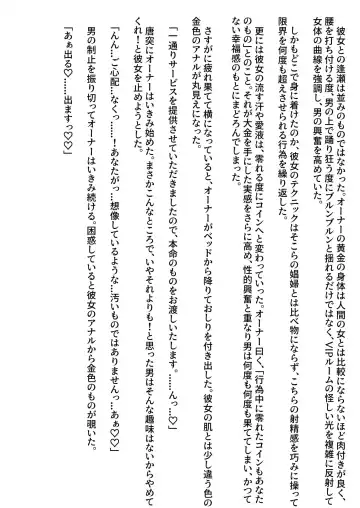 彼女との逢瀬は並みのものではなかった。オーナーの黄金の身体は人間の女とは比較にならないほど肉付きが良く、
腰を打ち付ける度、男の上で踊り狂う度にブルンブルンと揺れるだけではなく、VIPルームの怪しい光を複雑に反射して
女体の曲線を強調し、男の興奮を高めていた。
しかもどこで身に着けたのか、彼女のテクニックはそこらの娼婦とは比べ物にならず、こちらの射精感を巧みに操って
限界を何度も超えさせられる行為を繰り返した。
更には彼女の流す汗や愛液は、零れる度にコインへと変わっていった。オーナー曰く、「行為中に零れたコインもあなた
のもの」とのこと。それが大金を手にした実感をさらに高め、性的興奮と重なり男は何度も何度も果ててしまい、かつて
ない幸福感のもとにまどろんでしまった。
さすがに疲れ果てて横になっていると、オーナーがベッドから降りておしりを付き出した。彼女の肌とは少し違う色の
金色のアナルが丸見えになった。
「一通りサービスを提供させていただきましたので、本命のものをお渡しいたします。……んっ…♡」
唐突にオーナーはいきみ始めた。まさかこんなところで、いやそれよりも！と思った男はそんな趣味はないからやめて
くれ！と彼女を止めようとした。
「んんっ…ご心配…なくっ…！あなたがっ…想像しているような…汚いものではありませんっ…あぁ♡♡」
男の制止を振り切ってオーナーはいきみ続ける。困惑していると彼女のアナルから金色のものが覗いた。
「あぁ出る♡……出ますっ♡♡」